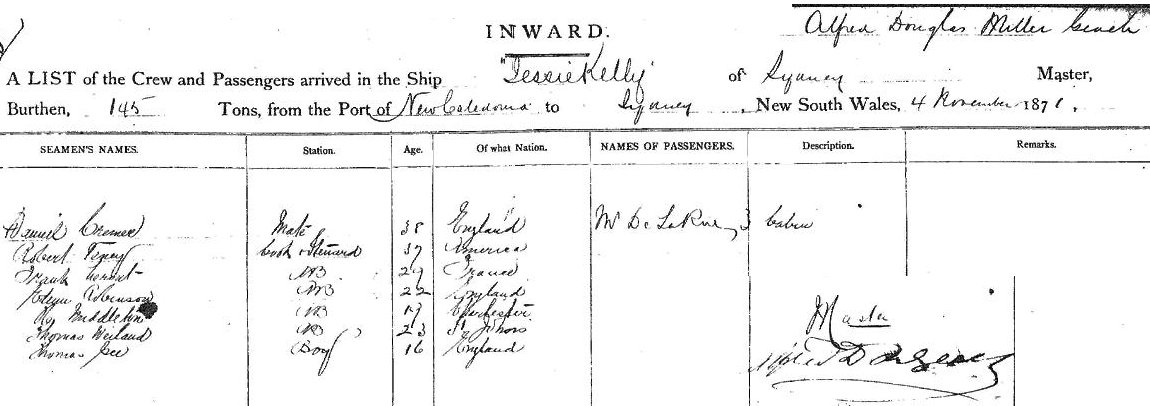 INWARD.
Alfred Douglas Miller
A LIST of the Crew and Passengers arrived in the Ship "Jessie Kelly" of Sydney Master,
Burthen, 145 Tons, from the Port of New Caledonia to Sydney, New South Wales, 4 November 1871.
SEAMEN'S NAMES. Station. Age. Of what Nation. NAMES OF PASSENGERS. Description. Remarks.
Daniel Mate 38 England Mr De LaRue Cabin
Robert Cook & Steward 37 America
Frank AB 29 France
Robinson AB 22 England
Hy Middleton AB 19
Thomas AB 23 St Johns
Thomas Gee Boy 16 England
Master
Alfred D